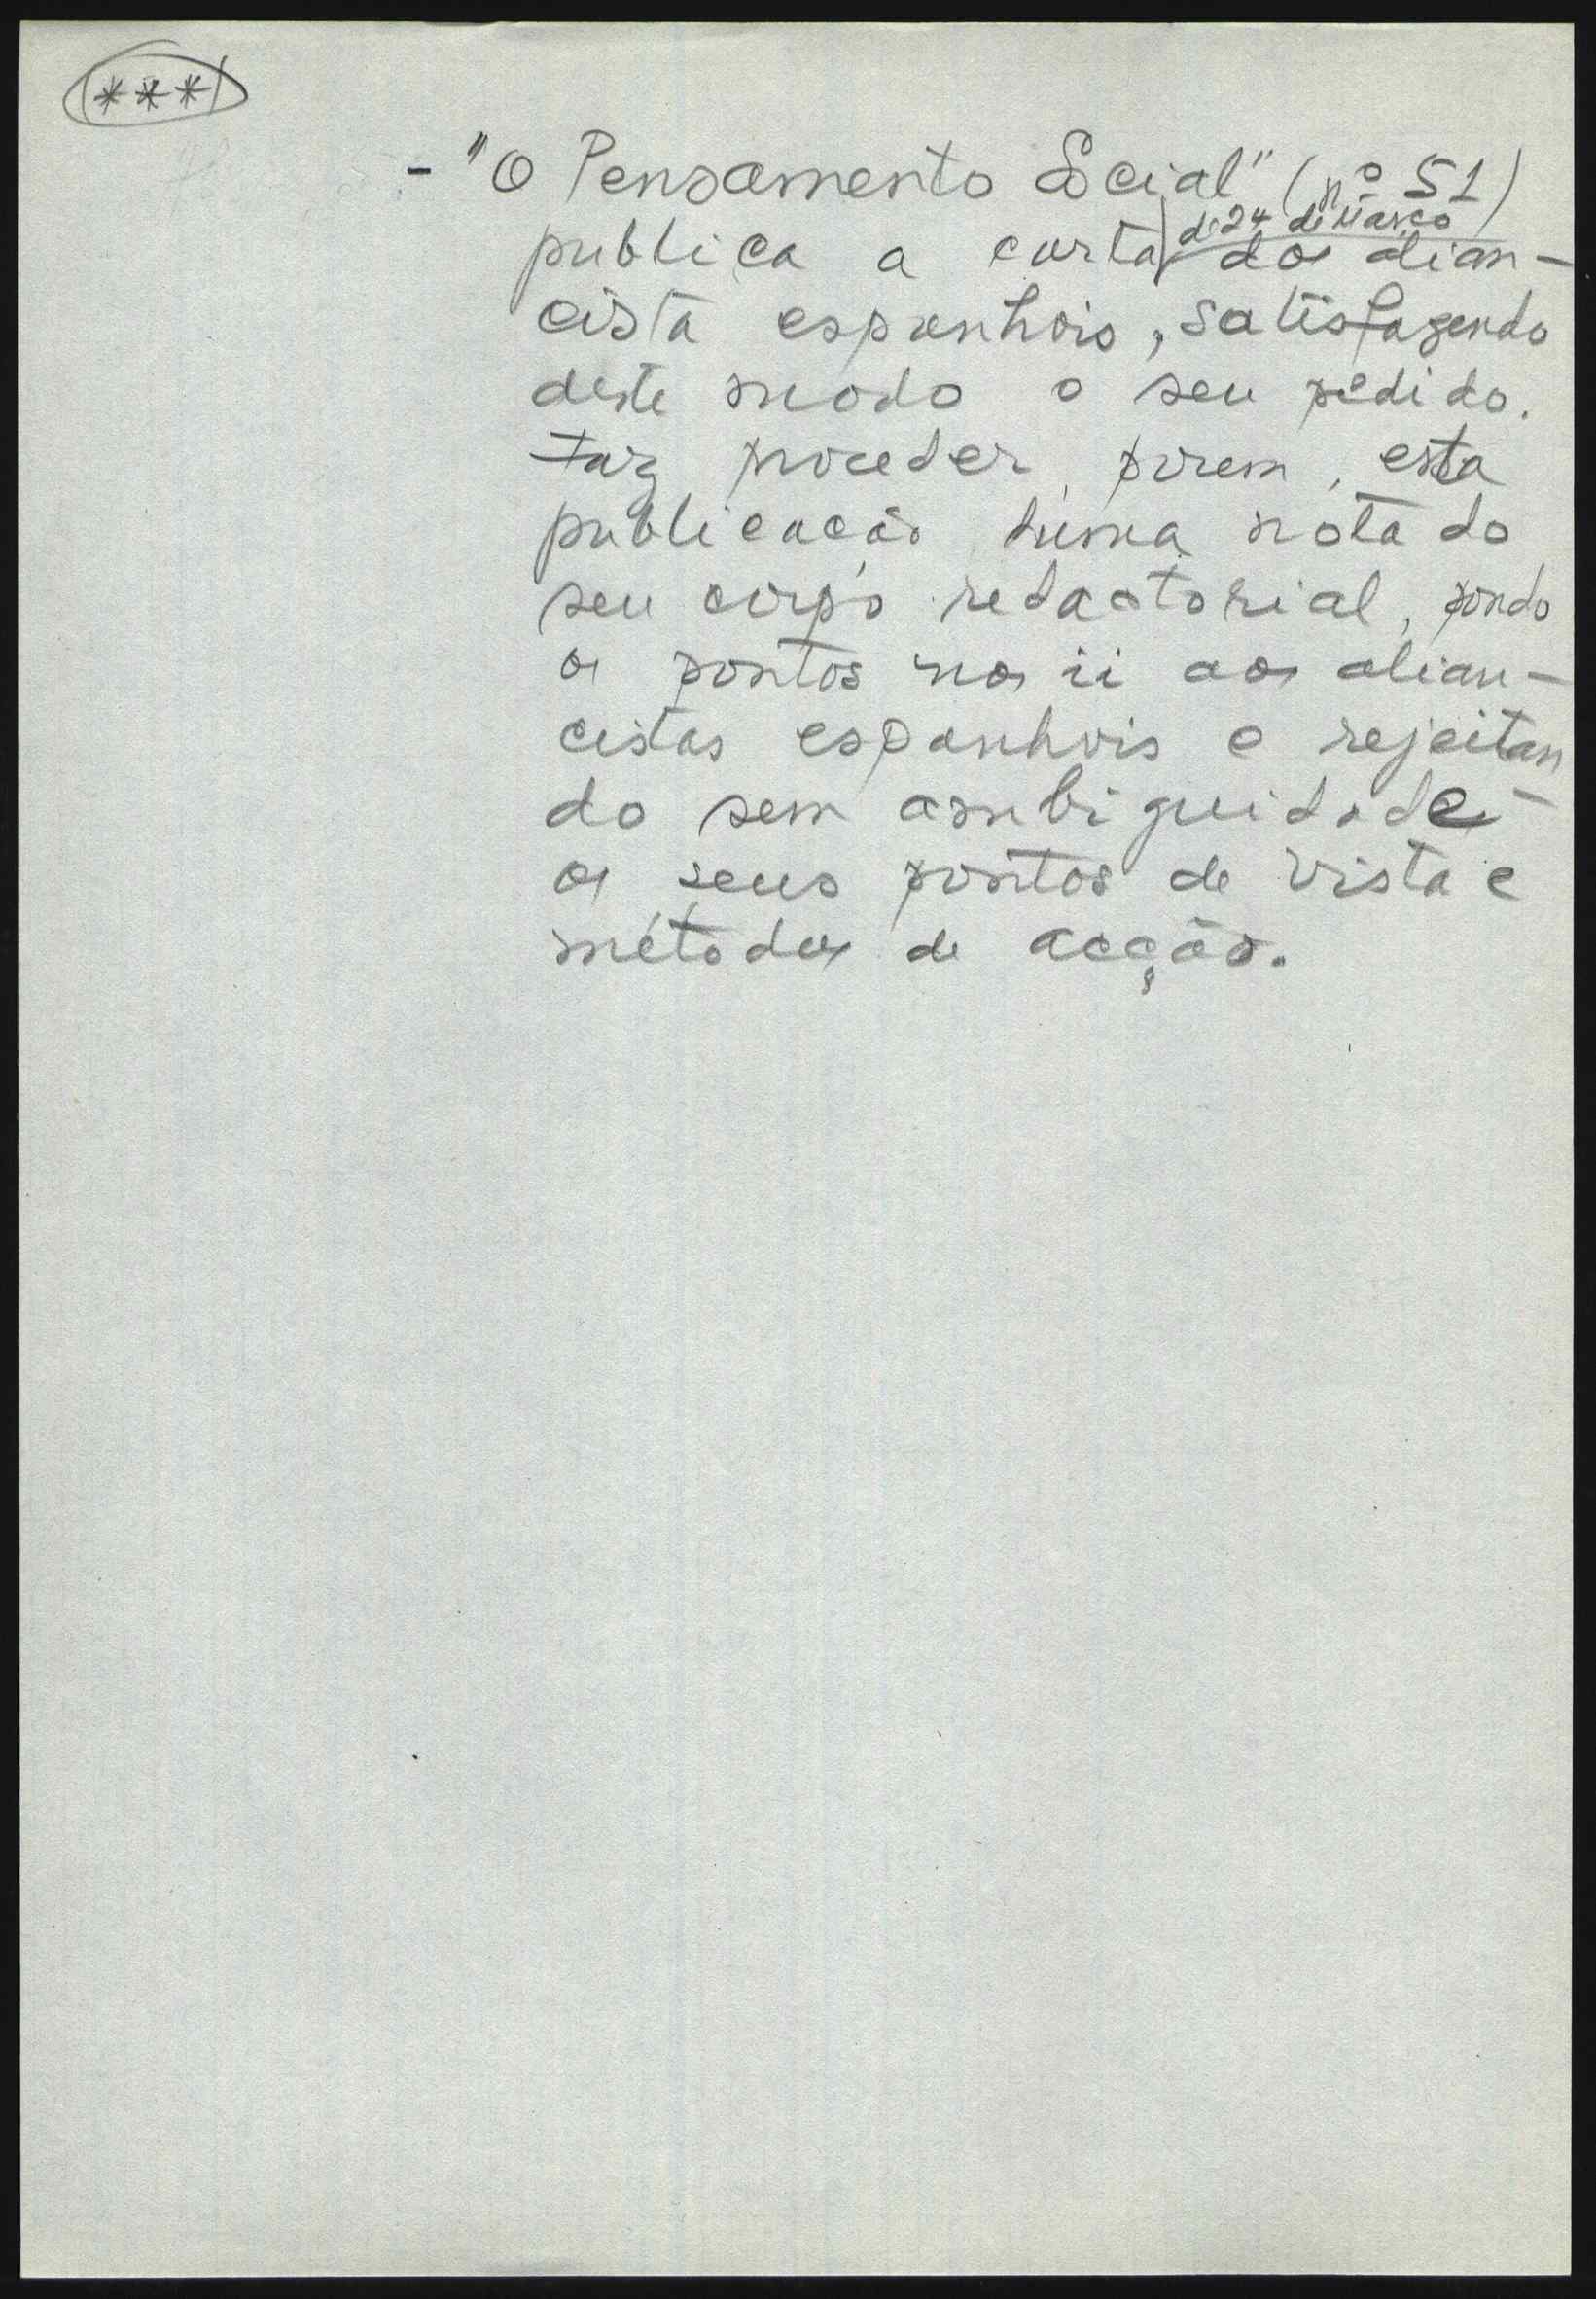 (***)
- "O Pensamento Social" (nº 51)
de 24 de Março
publica a carta dos alian-
cista espanhois, satisfazendo
deste modo o seu pedido.
Faz proceder, porem, esta
publicação duma nota do
seu corpo redactorial, pondo
os pontos nos ii aos alian-
cistas espanhois e rejeitan
do sem ambiguidade
os seus pontos de vista e
métodos de acção.